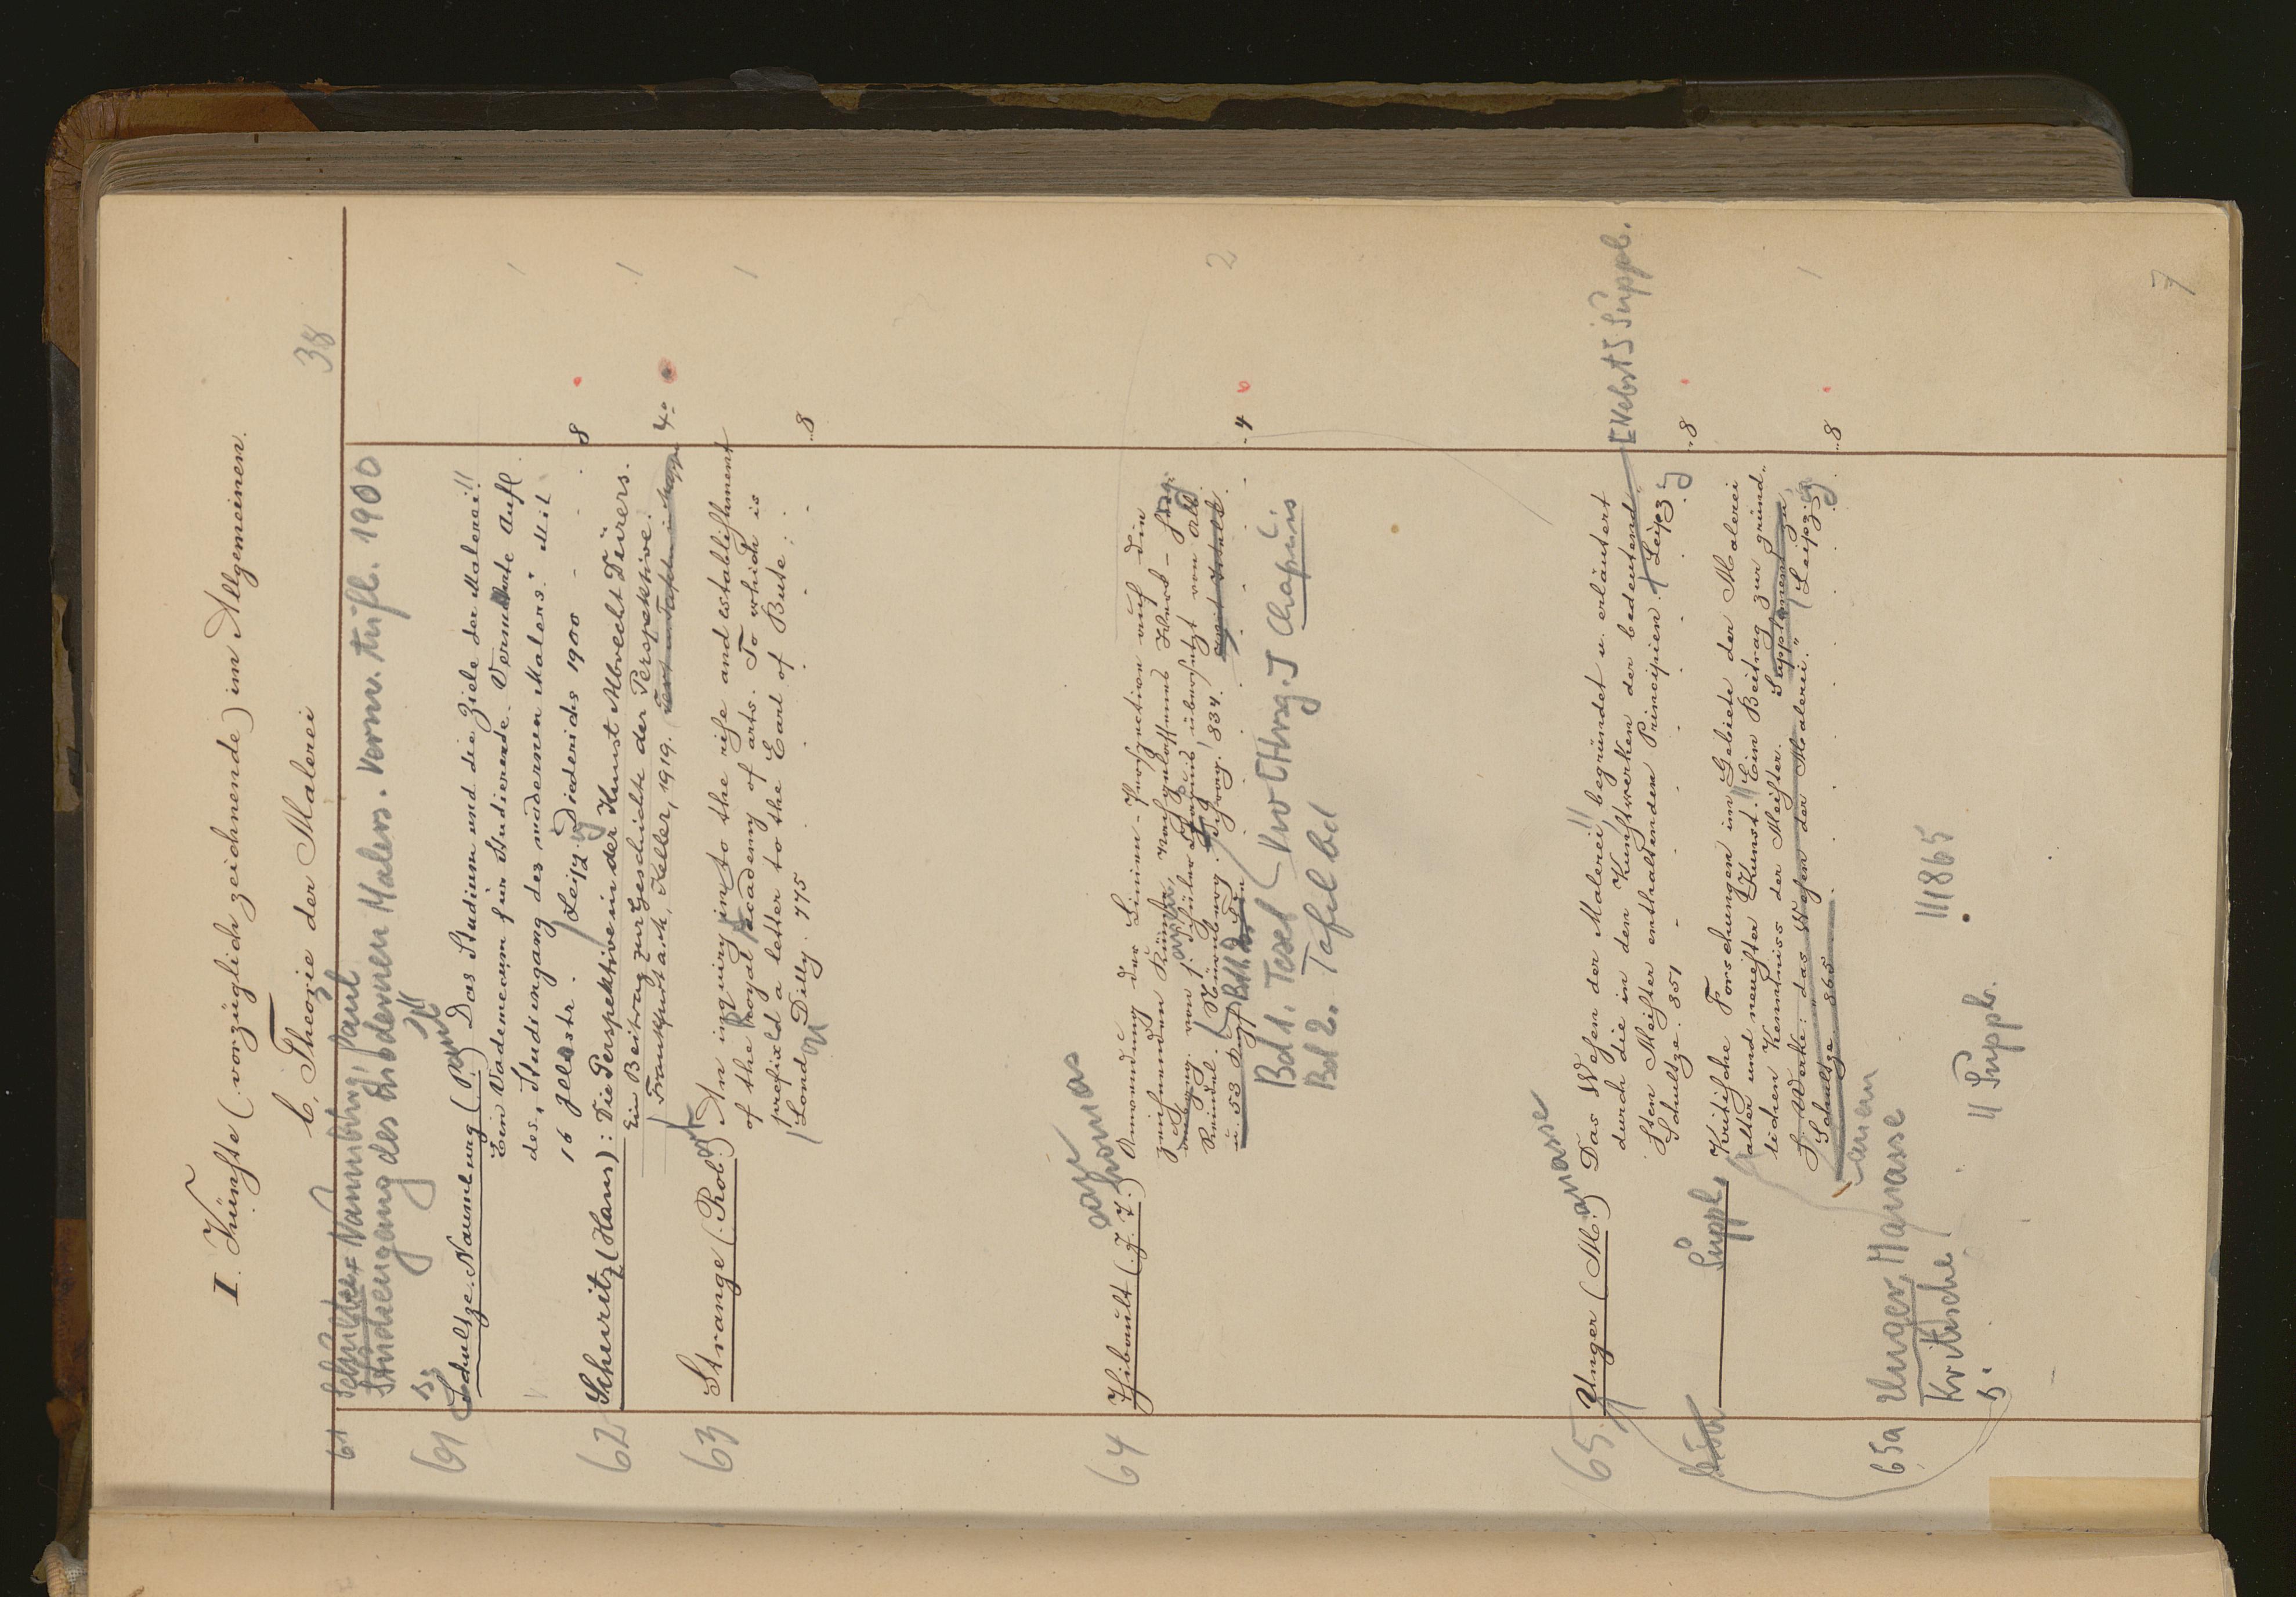 I. Künste (vorzüglich zeichnende) im Allgemeinen.
b, Theorie der Malerei
38
61 Schultze-Naumburg, Paul
Studiengang des modernen Malers. Verm. Aufl. 1900
61 Schultze-Naumburg (Paul) Das Studium und die Ziele der Malerei!!
Ein Vademecum für Studierende. Vermehrte Aufl.
des "Studiengang des modernen Malers." Mit
16 Illustr. Leipzig Diederichs 1900 - - 8
62 Schuritz (Hans): Die Perspektive in der Kunst Albrecht Dürers.
Ein Beitrag zur Geschichte der Perspektive.
Frankfurt a. M., Keller, 1919. 4°
63 Strange (Rob.) An inquiry into the rise and establishment
of the royal academy of arts. To which is
prefixed a letter to the Earl of Bute.
London Dilly. 775 8
64 Thibault (J. T.) Anwendung der Linien-Perspective auf die
zeichnenden Künste, nachgelassenes Werk
von s. Schüler Chapuis übersetzt von
Reindel. Nürnberg. Schrag. 834.
4
Bd 1. Text
Bd 2. Tafelbd
Chapuis
2
65 Unger (M.) Das Wesen der Malerei!! begründet u. erläutert
durch die in den Kunstwerken der bedeutend
sten Meister enthaltenden Principien. Leipzg
Schultze. 851 - - 8
[Nebst] Suppl.
Suppl. Kritische Forschungen im Gebiete der Malerei
alter und neuester Kunst. Ein Beitrag zur gründ-
lichen Kenntniss der Meister. Supplement zu
s. Werke: "das Wesen der Malerei." Leipzig
Schultze. 865 8
65a Unger, Manasse
Kritische 1865
Suppl.
7